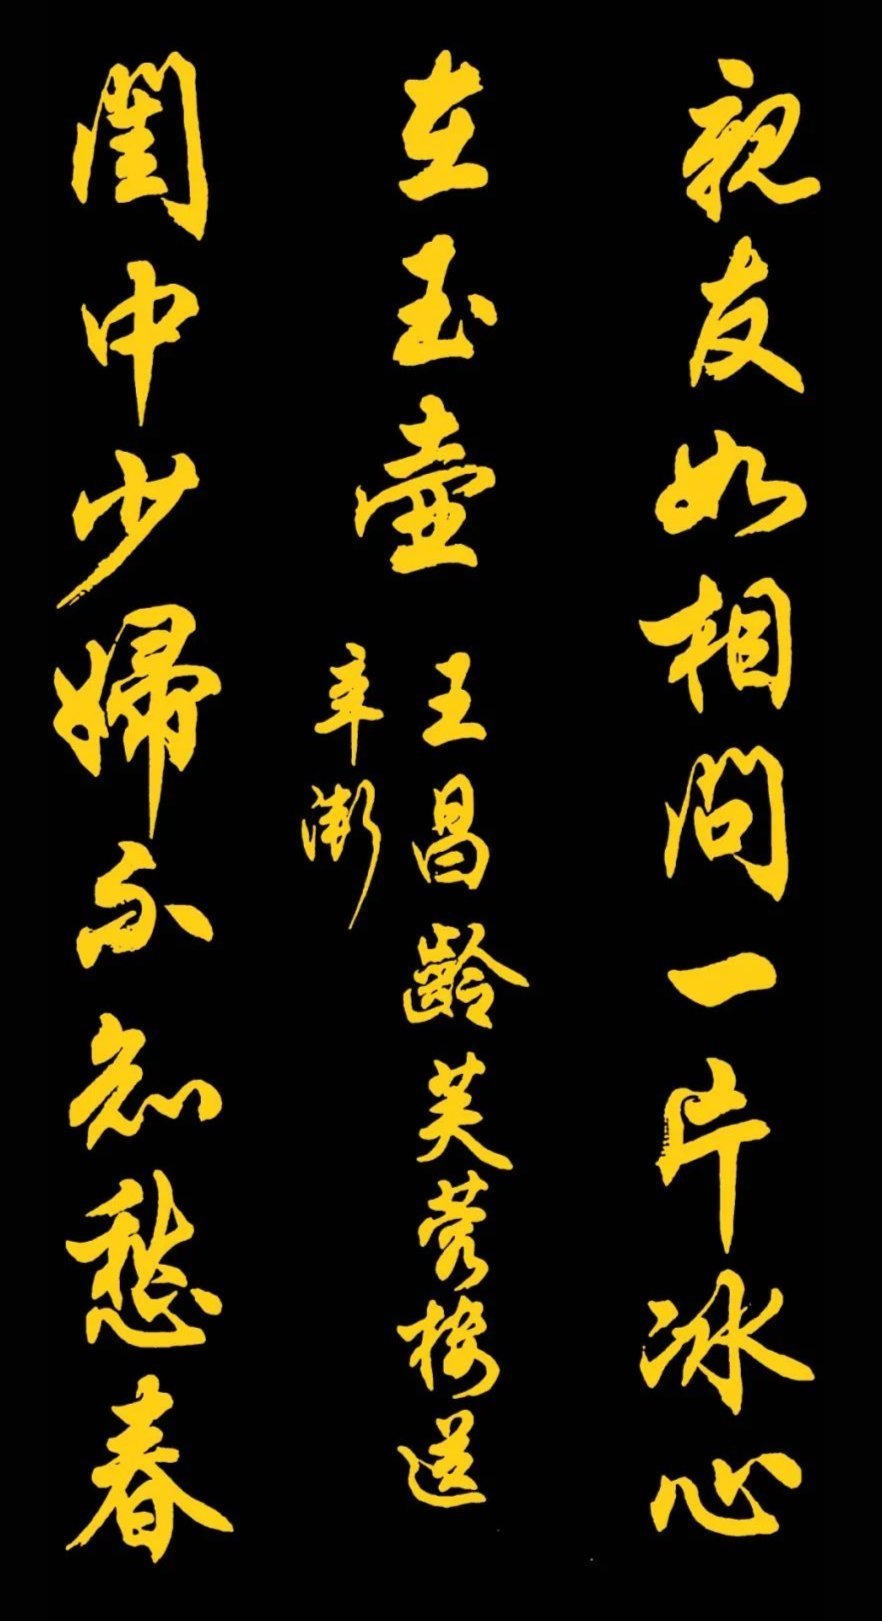 親友如相問一片冰心
在玉壺
王昌齡芙蓉樓送
辛漸
閨中少婦不知愁春